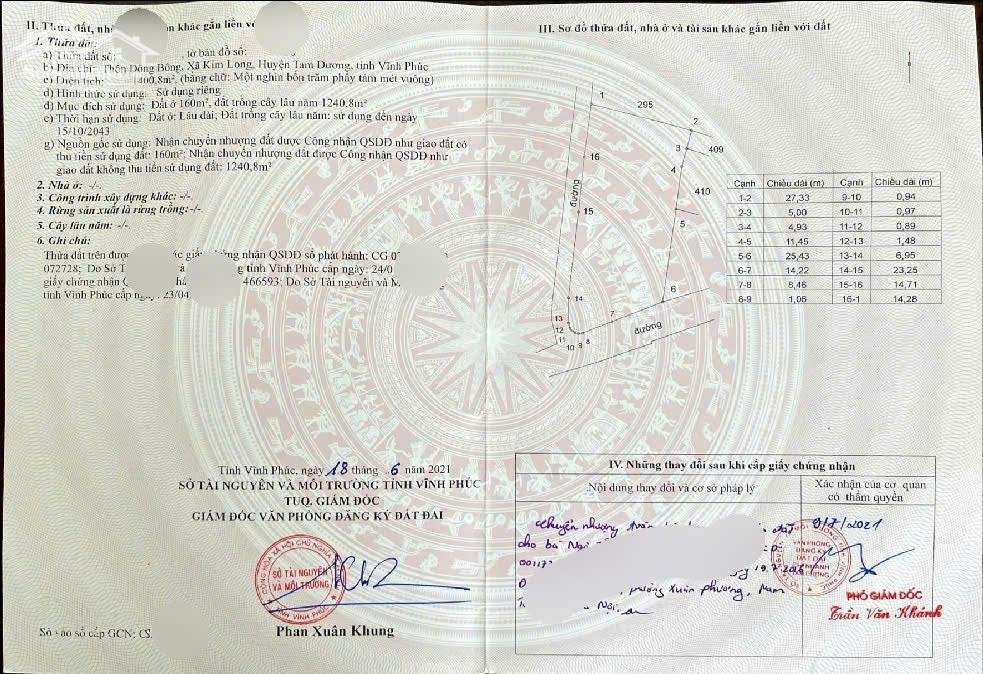 II. Thửa đất, nhà khác gắn liền với
1. Thửa đất:
a) Thửa đất số: , tờ bản đồ số:
b) Địa chỉ: Thôn Đồng Bông, Xã Kim Long, Huyện Tam Dương, tỉnh Vĩnh Phúc
c) Diện tích: 1400,8m², (bằng chữ: Một nghìn bốn trăm phẩy tám mét vuông)
d) Hình thức sử dụng: Sử dụng riêng
đ) Mục đích sử dụng: Đất ở 160m², đất trồng cây lâu năm 1240,8m²
e) Thời hạn sử dụng: Đất ở: Lâu dài; Đất trồng cây lâu năm: sử dụng đến ngày
15/10/2043
g) Nguồn gốc sử dụng: Nhận chuyển nhượng đất được Công nhận QSDĐ như giao đất có
thu tiền sử dụng đất: 160m²; Nhận chuyển nhượng đất được Công nhận QSDĐ như
giao đất không thu tiền sử dụng đất: 1240,8m²
2. Nhà ở: -/-
3. Công trình xây dựng khác: -/-
4. Rừng sản xuất là rừng trồng:-/-
5. Cây lâu năm: -/-
6. Ghi chú:
Thửa đất trên được các giấy chứng nhận QSDĐ số phát hành: CG
072728; Do Sở T tỉnh Vĩnh Phúc cấp ngày: 24/0
giấy chứng nhận 466593; Do Sở Tài nguyên và M
tỉnh Vĩnh Phúc cấp ngày: 23/04
Tỉnh Vĩnh Phúc, ngày 18 tháng 6 năm 2021
SỞ TÀI NGUYÊN VÀ MÔI TRƯỜNG TỈNH VĨNH PHÚC
TUQ. GIÁM ĐỐC
GIÁM ĐỐC VĂN PHÒNG ĐĂNG KÝ ĐẤT ĐAI
CỘNG HÒA XÃ HỘI CHỦ NGHĨA
SỞ TÀI NGUYÊN
VÀ MÔI TRƯỜNG
TỈNH VĨNH PHÚC
Phan Xuân Khung
Số vào sổ cấp GCN: CS.
III. Sơ đồ thửa đất, nhà ở và tài sản khác gắn liền với đất
1
295
2
3
409
4
410
16
đường
15
5
14
6
13
7
đường
12
11
10 9 8
Cạnh Chiều dài (m) Cạnh Chiều dài (m)
1-2 27,33 9-10 0,94
2-3 5,00 10-11 0,97
3-4 4,93 11-12 0,89
4-5 11,45 12-13 1,48
5-6 25,43 13-14 6,95
6-7 14,22 14-15 23,25
7-8 8,46 15-16 14,71
8-9 1,06 16-1 14,28
IV. Những thay đổi sau khi cấp giấy chứng nhận
Nội dung thay đổi và cơ sở pháp lý
Xác nhận của cơ quan
có thẩm quyền
Chuyển nhượng đất
cho bà
00117
phường Xuân Phương, Nam
Nội
9/7/2021
VĂN PHÒNG
ĐĂNG KÝ
ĐẤT ĐAI
PHÓ GIÁM ĐỐC
Trần Văn Khánh